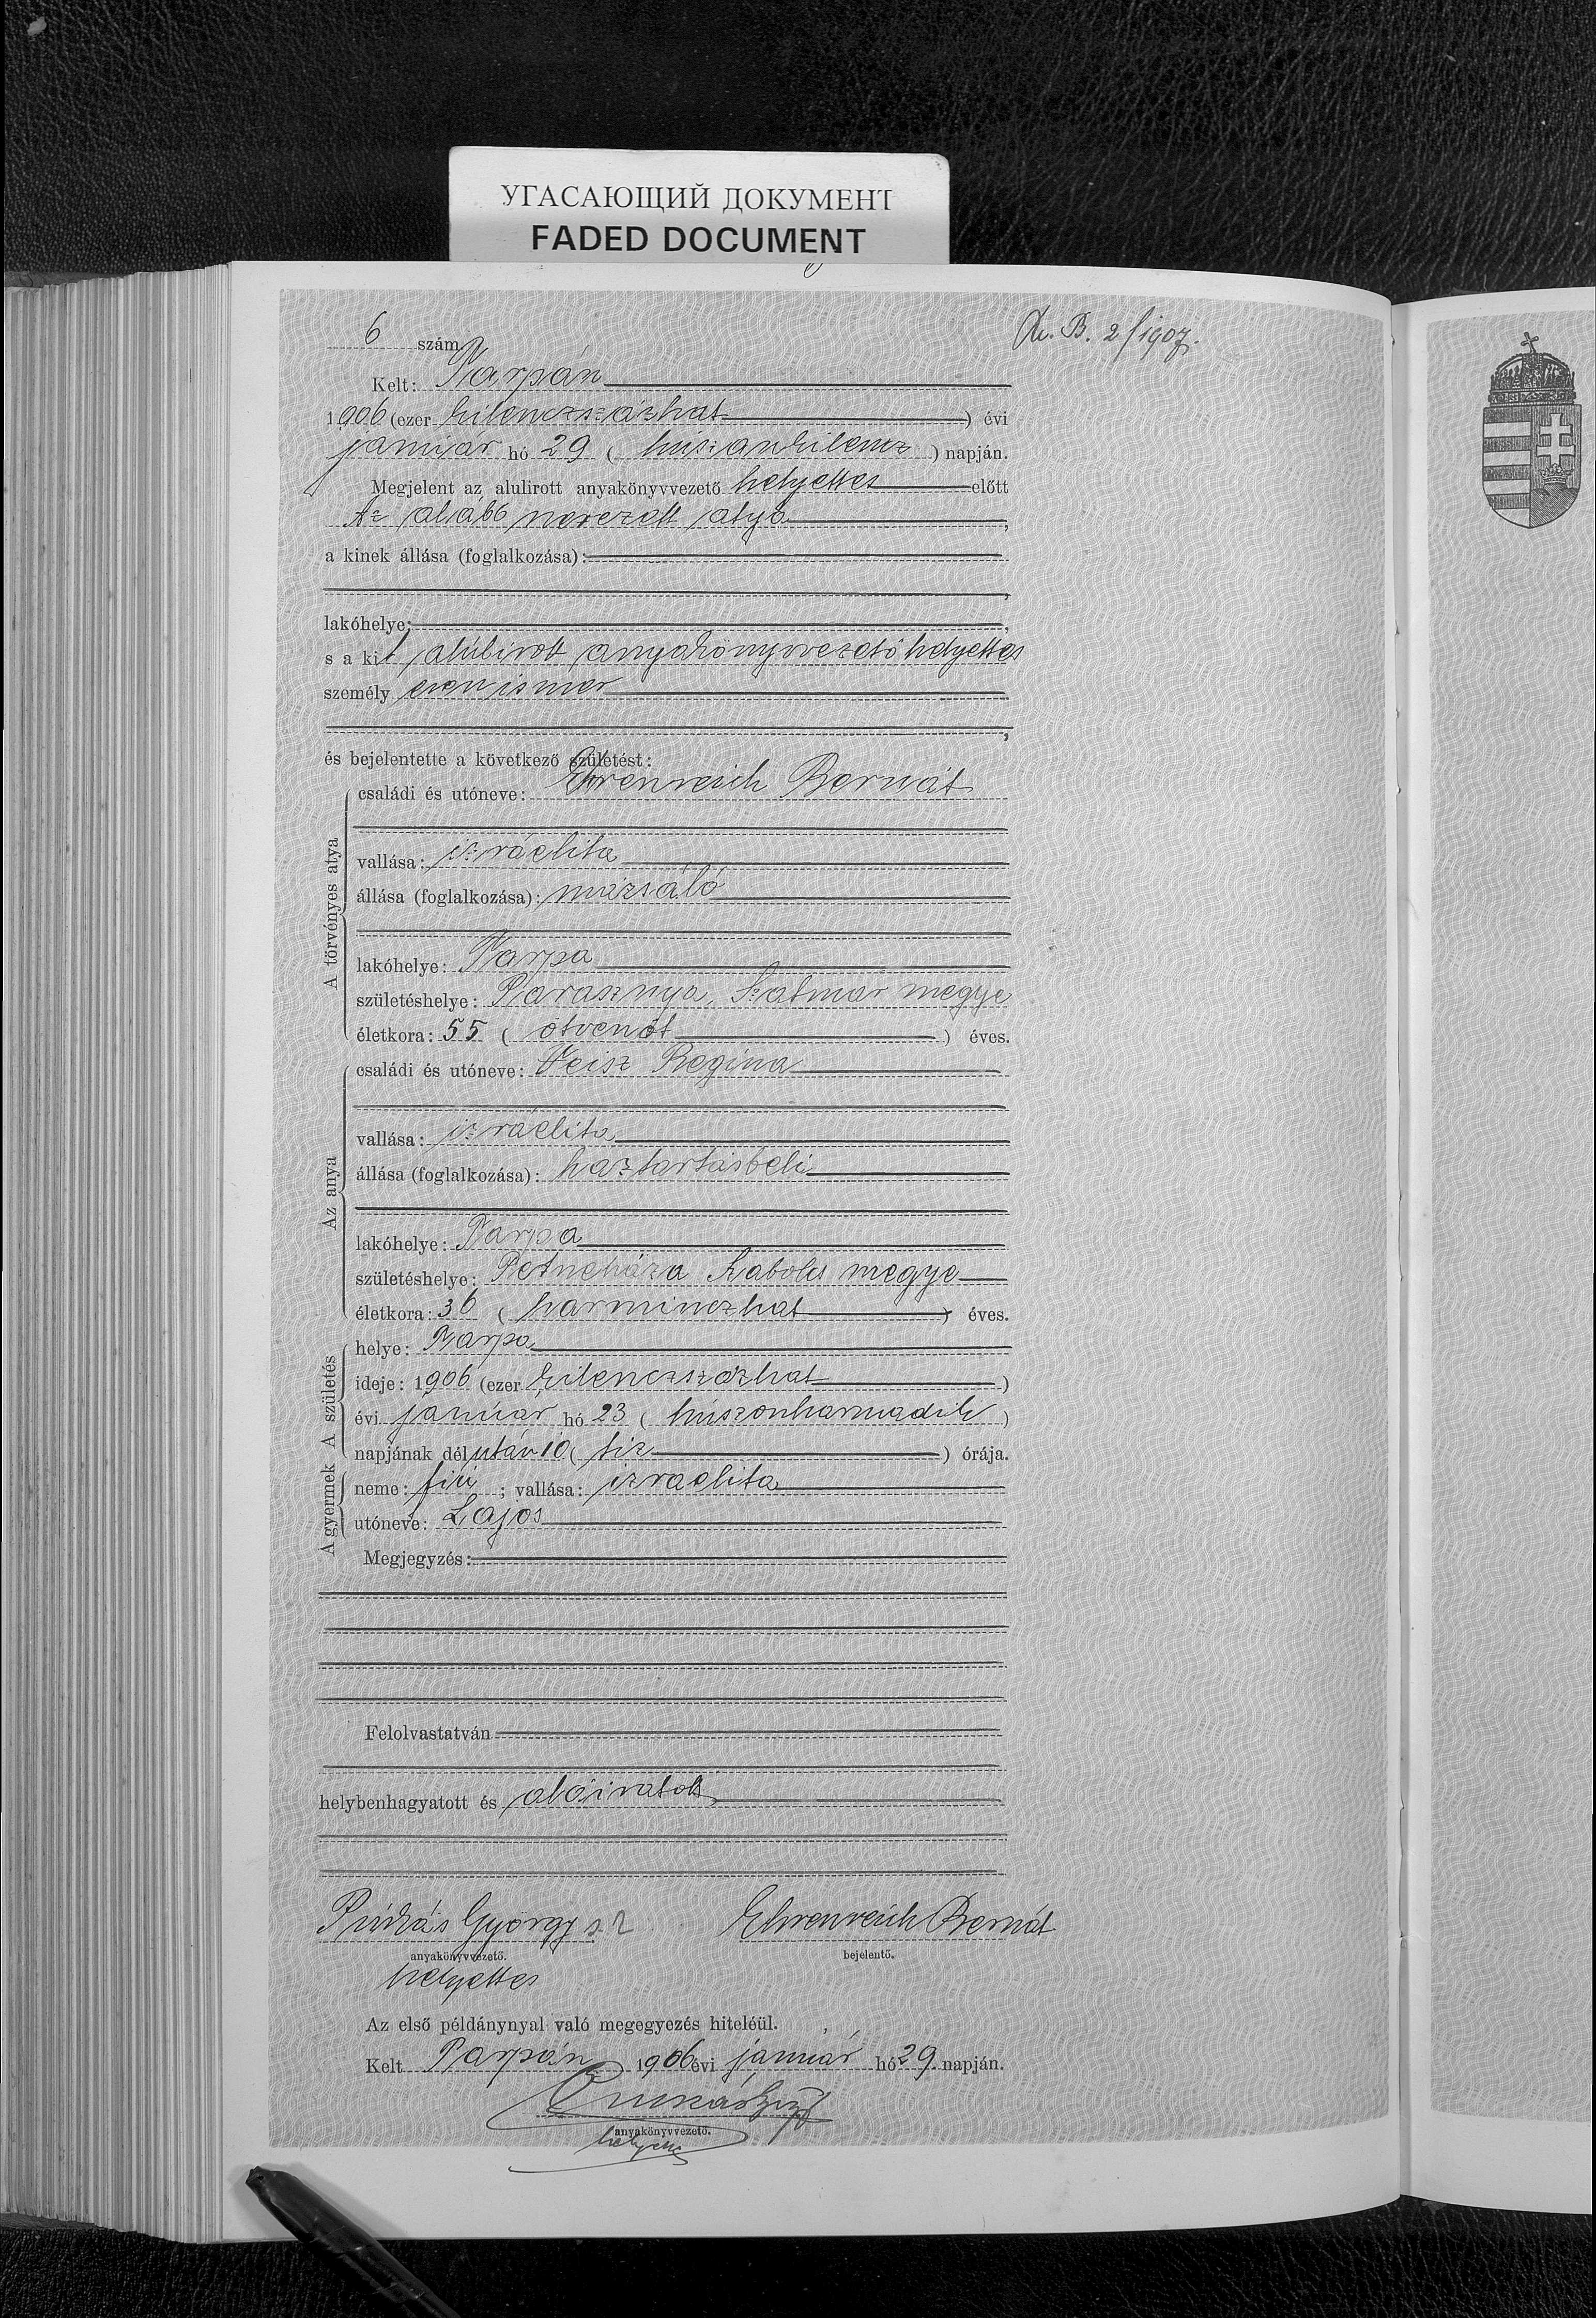 УГАСАЮЩИЙ ДОКУМЕНТ
FADED DOCUMENT
6 szám
B. 2/1907.
Kelt: Tarpán
1906 (ezer kilenczszázhat) évi
január hó 29 (huszonkilencz) napján.
Megjelent az alulirott anyakönyvvezető helyettes előtt
Az alább nevezett atya,
a kinek állása (foglalkozása):
lakóhelye:
s a kit alúlirott anyakönyvvezető helyettes
személyesen ismer
és bejelentette a következő születést:
A törvényes atya
családi és utóneve: Ehrenreich Bernát
vallása: izráelita
állása (foglalkozása): mázsáló
lakóhelye: Tarpa
születéshelye: Parasznya, Szatmár megye
életkora: 55 (ötvenöt) éves.
Az anya
családi és utóneve: Veisz Regina
vallása: izráelita
állása (foglalkozása): háztartásbeli
lakóhelye: Tarpa
születéshelye: Petneháza Szabolcs megye
életkora: 36 (harminczhat) éves.
A születés
helye: Tarpa
ideje: 1906 (ezer kilenczszázhat)
évi január hó 23 (húszonharmadik)
napjának délután 10 (tiz) órája.
A gyermek
neme: fiú; vallása: izraelita
utóneve: Lajos
Megjegyzés:
Felolvastatván
helybenhagyatott és aláiratott
György s. k. Ehrenreich Bernát
anyakönyvvezető. bejelentő.
helyettes
Az első példánynyal való megegyezés hiteléül.
Kelt Tarpán 1906 évi január hó 29. napján.
anyakönyvvezető.
helyettes